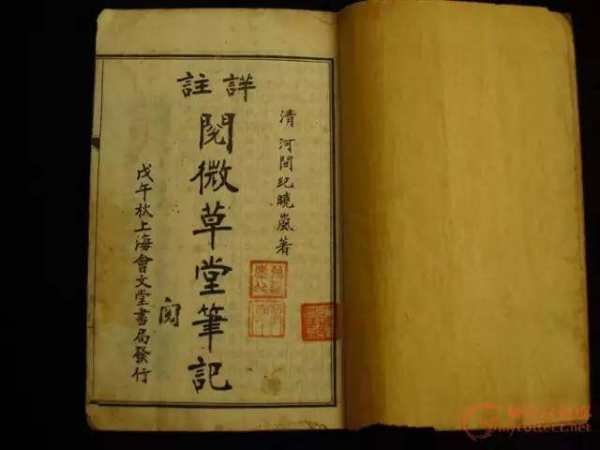 清 河間紀曉嵐著
詳註
閱微草堂筆記
戊午秋上海會文堂書局發行
mycollect.net